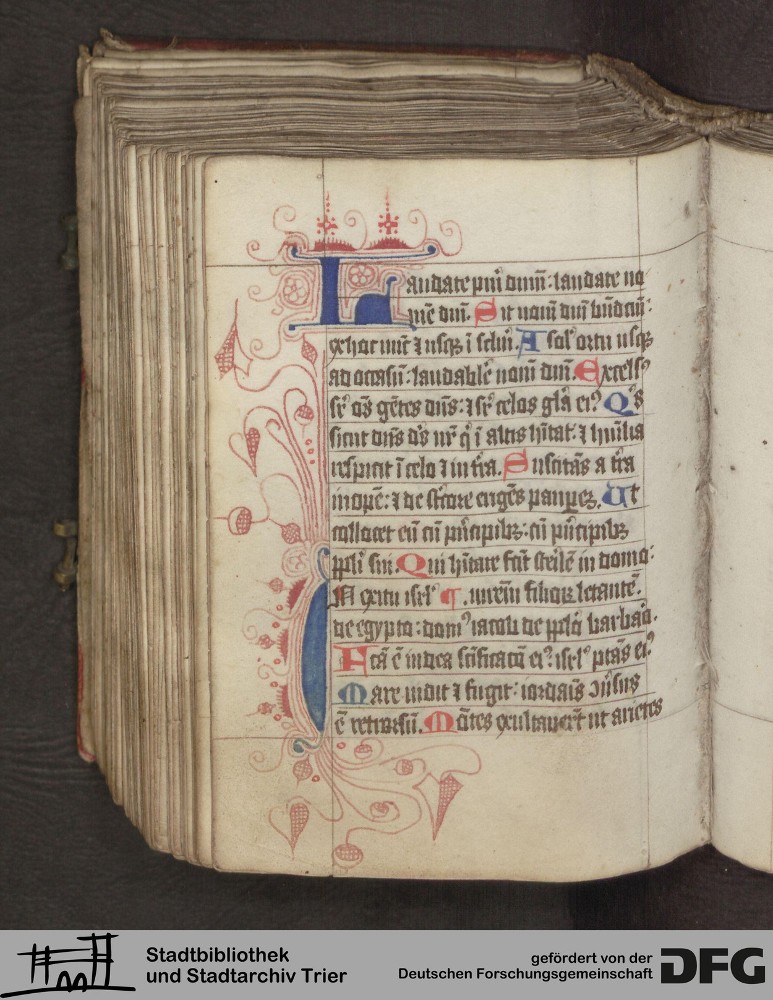 Laudate puͥ dnm̄: laudate no
mē dnī. Sit nomē dnī bn̄dictū:
ex hoc nūc ⁊ usqꝫ ī sclm̄. A sol' ortu usqꝫ
ad occasū: laudabīle nomē dnī. Excels'
sr̄ oēs gētes dn̄s: ⁊ sr̄ celos glā eiꝰ. Qͥs
sicut dn̄s dꝰs nr̄ qͥ ī altis hītat: ⁊ hūilia
respicit ī celo ⁊ in tr̄a. Suscitās a tr̄a
inopē: ⁊ de st̄core erigēs pauꝑeꝫ. Ut
collocet eū cū pͥncipibꝫ: cū pͥncipibꝫ
ppl̄i sui. Qui hītare fac̄ sterilē in domo:
IN exitu isrl' ¶. m̄rem filioꝝ letantē.
de egypto: domꝰ iacob de ppl̄o barbaō.
Fcā ē iudea sc̄ificatō eiꝰ: isrl' ptās eiꝰ.
Mare uidit ⁊ fugit: iordaīs ꝯuersus
ē retrorsū. Mōtes exultauer̄t ut arietes
Stadtbibliothek
und Stadtarchiv Trier
gefördert von der
Deutschen Forschungsgemeinschaft DFG